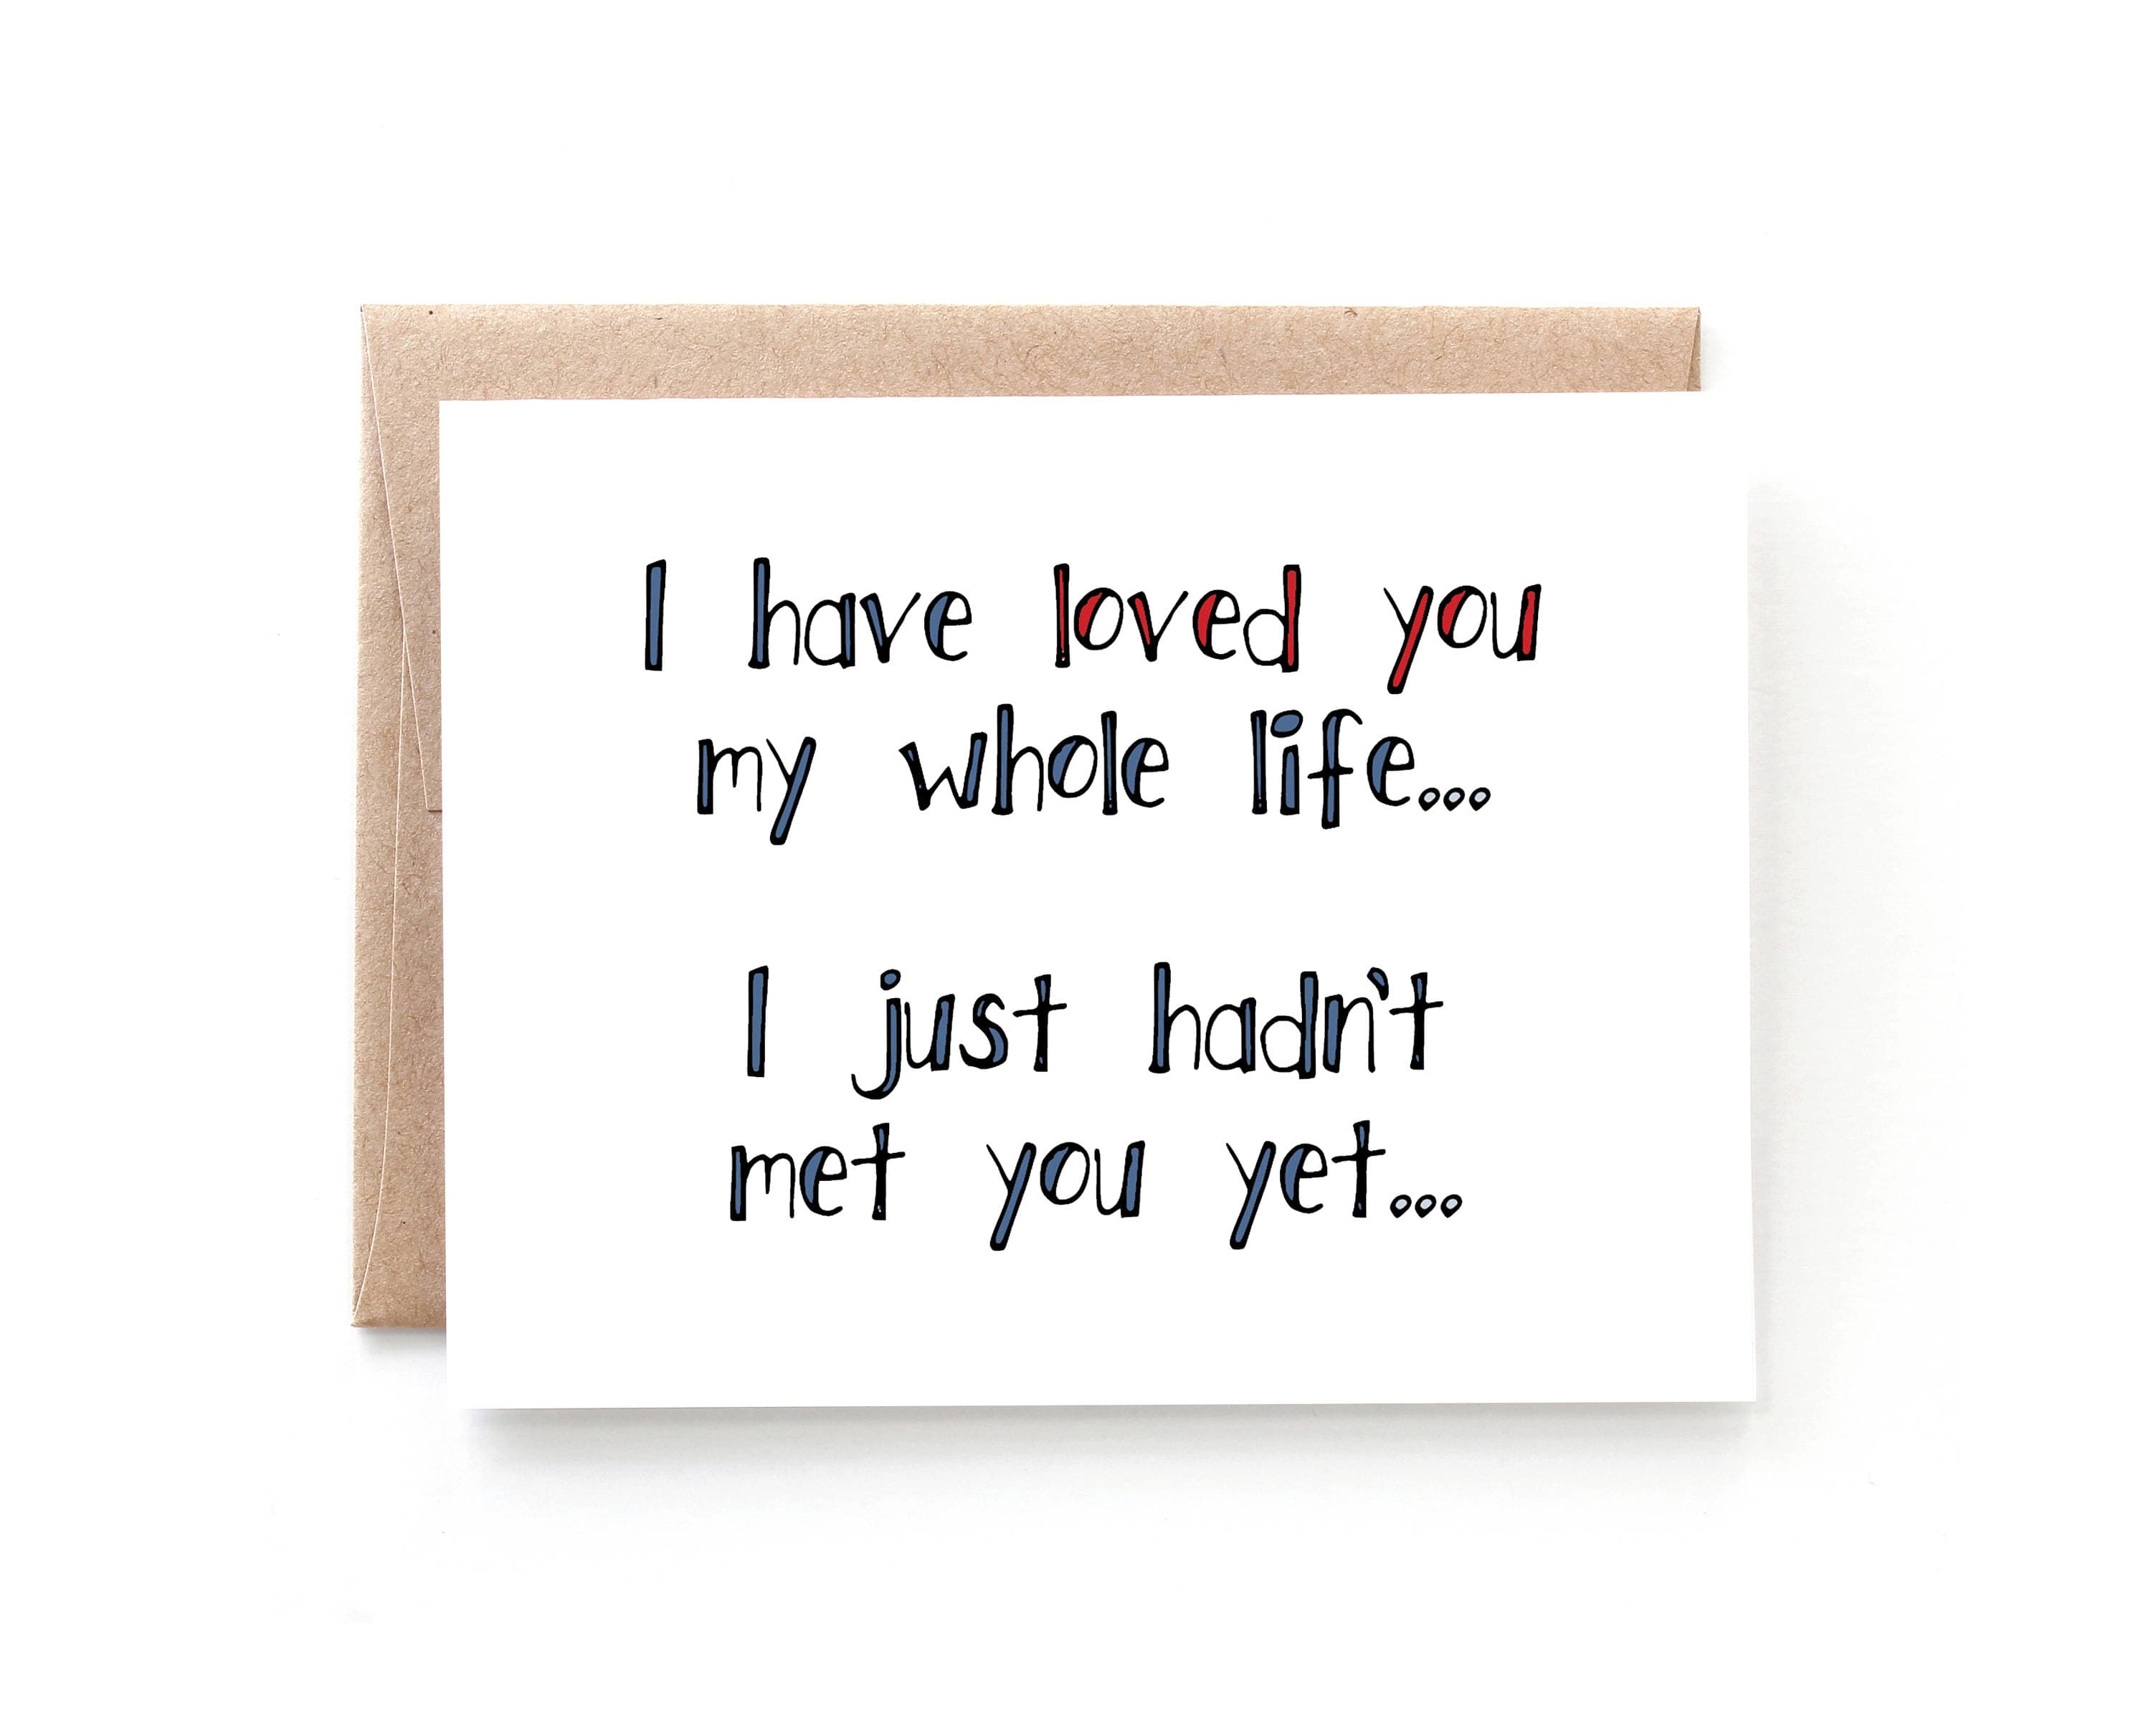 I have loved you
my whole life...
I just hadn't
met you yet...